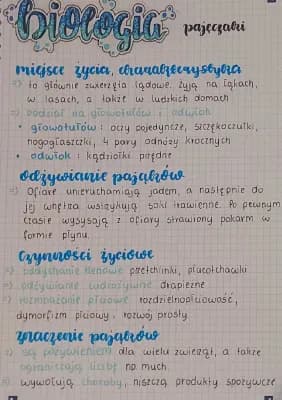 biologia pajęczaki
miejsce życia, charakterystyka
=> to głównie zwierzęta lądowe. żyją na łąkach,
w lasach, a także w ludzkich domach
=> podział na głowotułów i odwłok
• głowotułów: oczy pojedyncze, szczękoczułki,
nogogłaszczki, 4 pary odnóży krocznych
• odwłok: kądziołki przędne
odżywianie pająków
=> Ofiarę unieruchamiają jadem, a następnie do
jej wnętrza wstrzykują soki trawienne. Po pewnym
czasie wysysają z ofiary strawiony pokarm w
formie płynu.
Czynności życiowe
=> oddychanie tlenowe przetchlinki, płucotchawki
=> odżywianie cudzożywne drapieżne
=> rozmnażanie płciowe rozdzielnopłciowość,
dymorfizm płciowy, rozwój prosty
znaczenie pająków
=> są pożywieniem dla wielu zwierząt, a także
ograniczają liczbę much.
=> wywołują choroby, niszczą produkty spożywcze